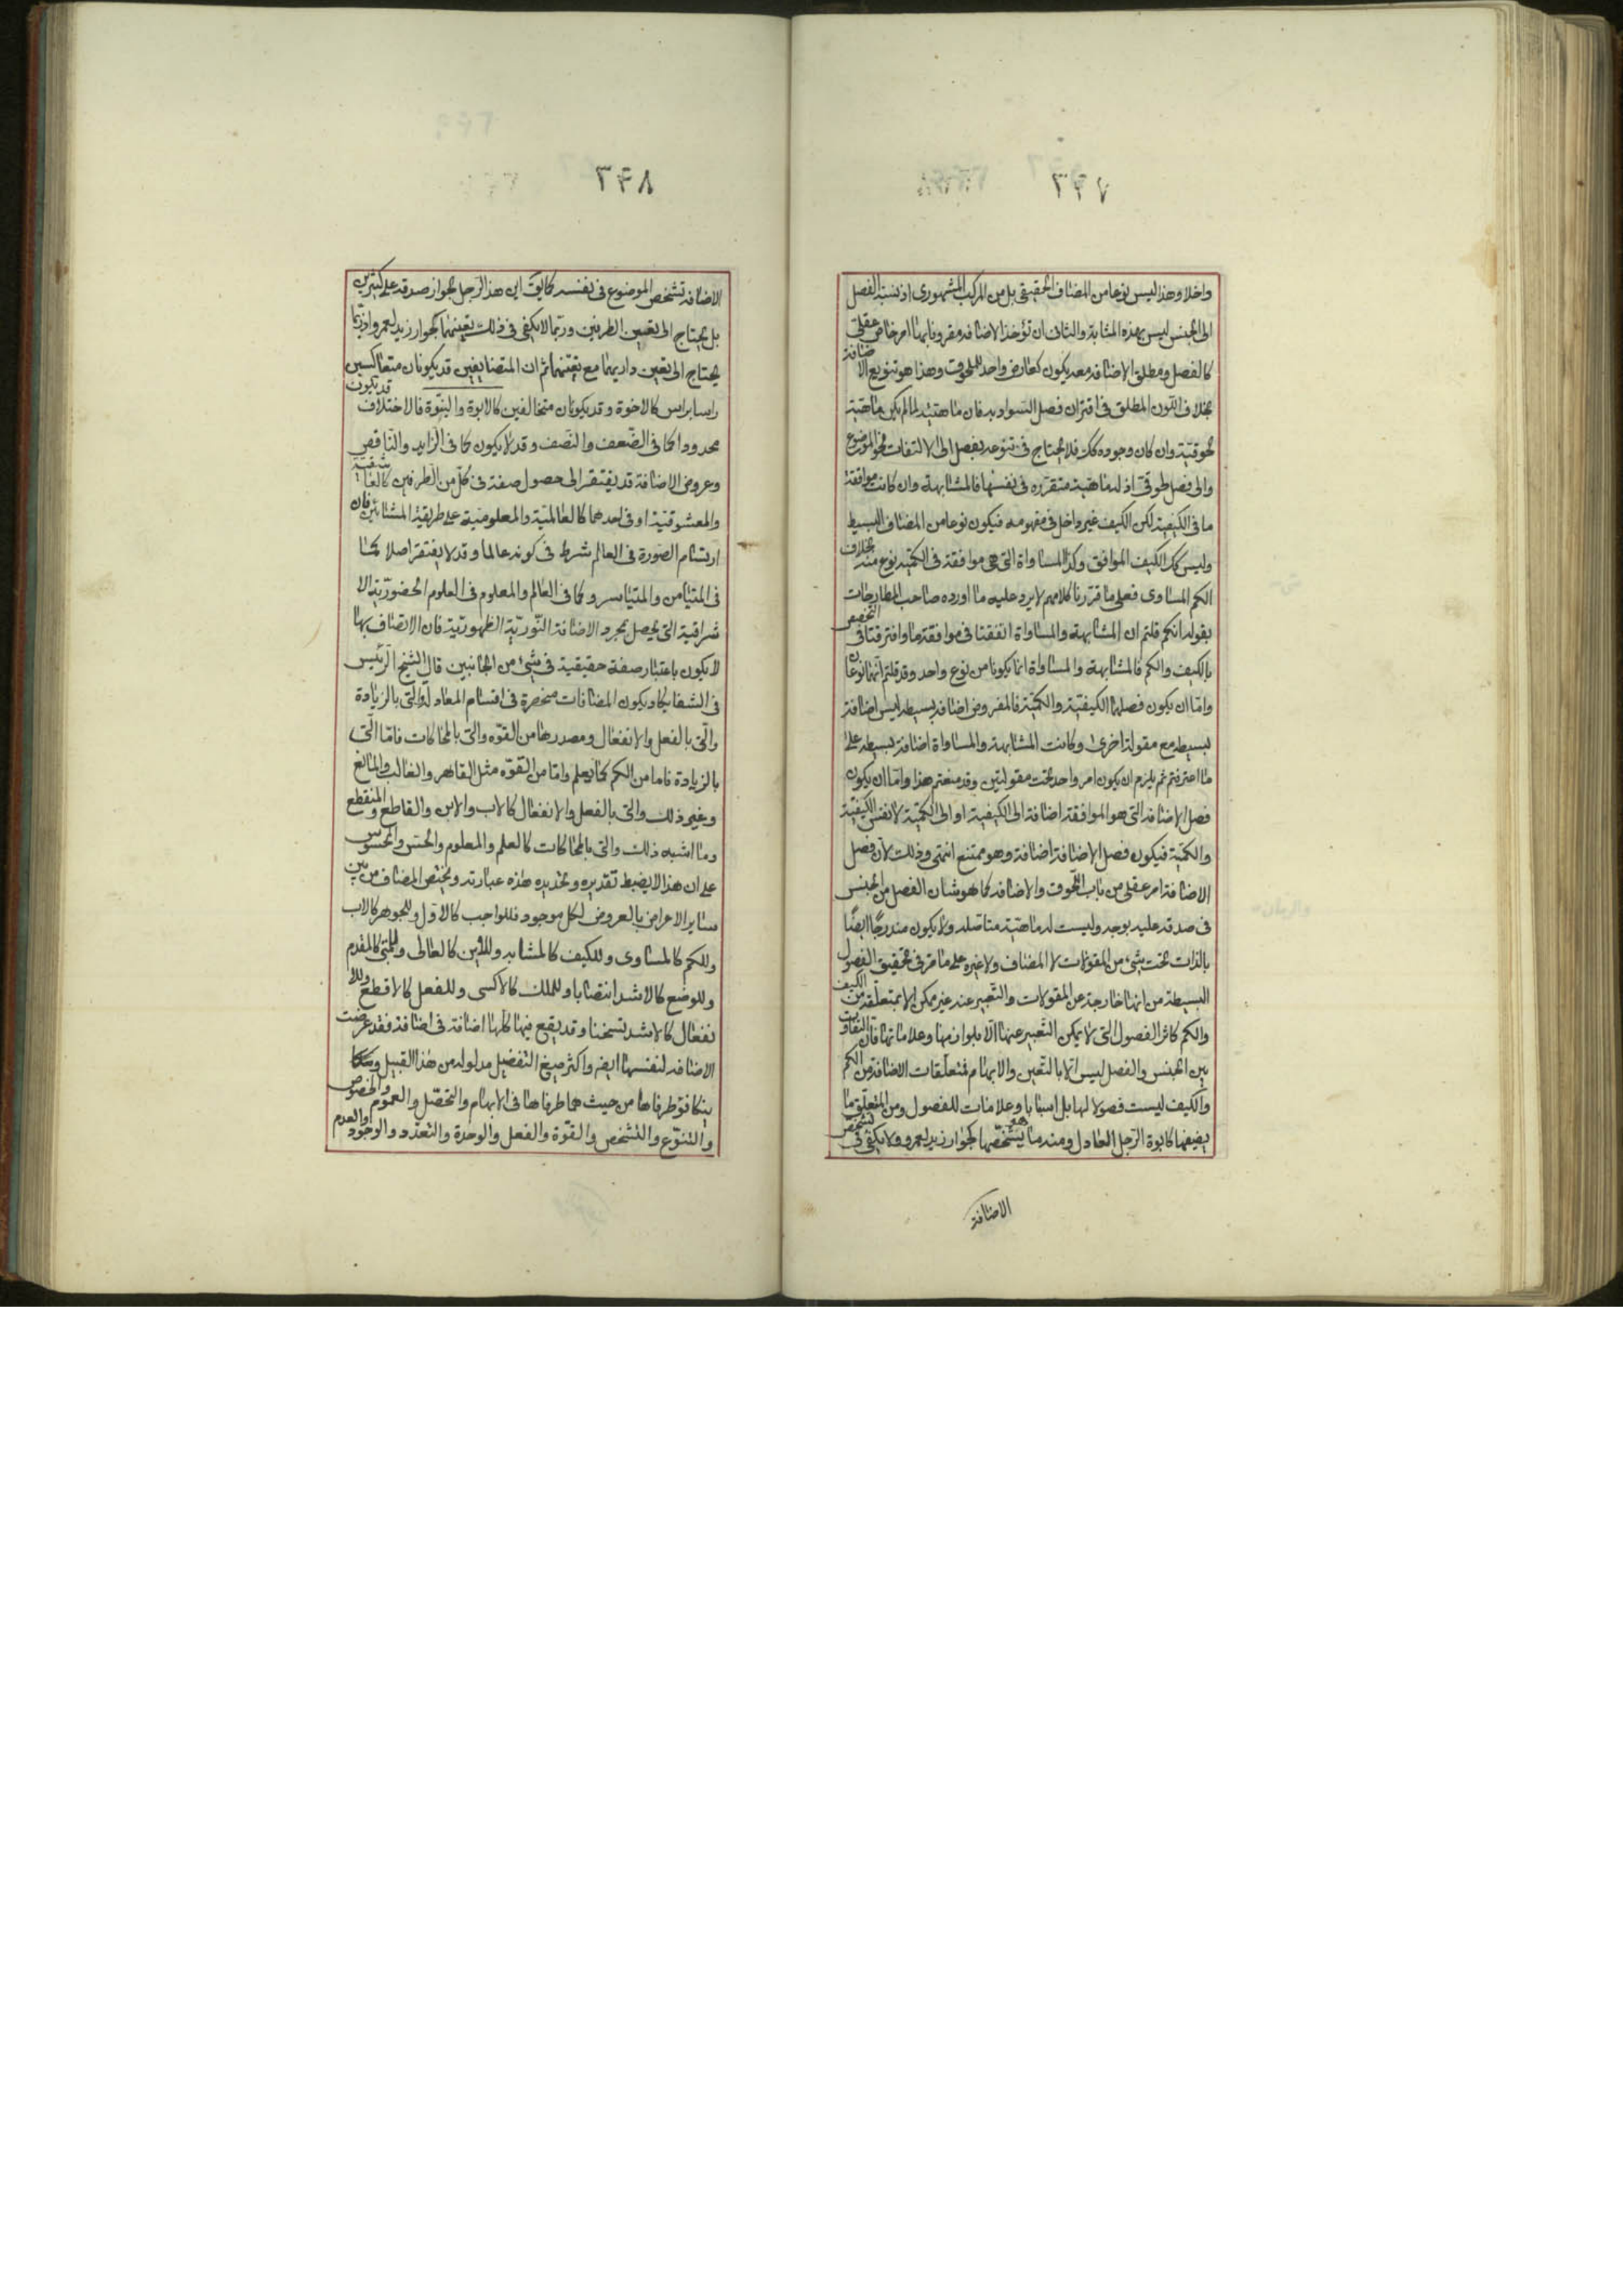 ٣٤٧
واخلا وهذا ليس نوعا من المضاف الحقيقى بل من المركب المشهورى اذ نسبة الفصل
الى الجنس ليس بهذه المثابة والثانى ان تؤخذ الاضافة مقرونا بها امر خاص عقلى
كالفصل ومطلق الاضافة معه يكون كعارض واحد للملحوق وهذا هو تنويع الاضافة
بخلاف اللون المطلق فى اقتران فصل السواد به فان ماهيته لما لم يكن ماهية
لحوقية وان كان وجوده كك فلا يحتاج فى تنوعه بفصل الى الالتفات نحو الموضوع
والى فصل لحوقى اذ له ماهية متقررة فى نفسها فالمشابهة وان كانت موافقة
ما فى الكيفية لكن الكيف غير داخل فى مفهومه فيكون نوعا من المضاف البسيط
وليس كك الكيف الموافق وكذا المساواة التى هى موافقة فى الكمية نوع منه بخلاف
الكم المساوى فعلى ما قررنا كلامهم لا يرد عليه ما اورده صاحب المطارحات
بقوله انكم قلتم ان المشابهة والمساواة اتفقتا فى موافقة ما وافترقتا فى التخصيص
بالكيف والكم فالمشابهة والمساواة انما يكونا من نوع واحد وقد قلتم انهما نوعان
واما ان يكون فصلهما الكيفية والكمية فالمفروض اضافة بسيطة ليس اضافة
بسيطة مع مقولة اخرى وكانت المشابهة والمساواة اضافة بسيطة على
ما اعترفتم ثم يلزم ان يكون امر واحد تحت مقولتين وقد منعتم هذا واما ان يكون
فصل الاضافة التى هو الموافقة اضافة الى الكيفية او الى الكمية لا نفس الكيفية
والكمية فيكون فصل الاضافة اضافة وهو ممتنع انتهى وذلك لان فصل
الاضافة امر عقلى من باب اللحوق والاضافة كما هو شان الفصل من الجنس
فى صدقه عليه بوجه وليست له ماهية متاصلة ولا يكون مندرجا ايضا
بالذات تحت شىء من المقولات لا المضاف ولا غيره على ما مر فى تحقيق الفصول
البسيطة من انها خارجة عن المقولات والتعبير عنه غير ممكن الا بمتعلقه من الكيف
والكم كائر الفصول التى لا يمكن التعبير عنها الا بلوازمها وعلاماتها فان التفاوت
بين الجنس والفصل ليس الا بالتعين والابهام فمتعلقات الاضافة من الكم
والكيف ليست فصولا لها بل اسبابا وعلامات للفصول ومن المتعلق ما
يضيفها كابوة الرجل العادل ومنه ما يشخصها كجوار زيد لعمرو ولا يكفى فى تشخص
الاضافة
٣٤٨
الاضافة تشخص الموضوع فى نفسه كما يق ابن هذا الرجل لجواز صدقه على كثيرين
بل يحتاج الى تعيين الطرفين وربما لا يكفى فى ذلك تعينهما كجوار زيد لعمرو اذ ربما
يحتاج الى تعين داريهما مع تعينهما ثم ان المتضايفين قد يكونان متعاكسين
راسا براس كالاخوة وقد يكونان متخالفين كالابوة والبنوة فالاختلاف قد يكون
محدودا كما فى الضعف والنصف وقد لا يكون كما فى الزايد والناقص
وعروض الاضافة قد يفتقر الى حصول صفة فى كل من الطرفين كالعاشقية
والمعشوقية او فى احدهما كالعالمية والمعلومية على طريقة المشائين فان
ارتسام الصورة فى العالم شرط فى كونه عالما وقد لا يفتقر اصلا كما
فى المتيامن والمتياسر وكما فى العالم والمعلوم فى العلوم الحضورية الا
شراقية التى يحصل بمجرد الاضافة النورية الظهورية فان الاتصاف بها
لا يكون باعتبار صفة حقيقية فى شىء من الجانبين قال الشيخ الرئيس
فى الشفا يكاد يكون المضافات منحصرة فى اقسام المعادلة والتى بالزيادة
والتى بالفعل والانفعال ومصدرها من القوة والتى بالمحاكات فاما التى
بالزيادة فاما من الكم كما يعلم واما من القوة مثل القاهر والغالب والمانع
وغير ذلك والتى بالفعل والانفعال كالاب والابن والقاطع والمنقطع
وما اشبه ذلك والتى بالمحاكات كالعلم والمعلوم والحس والمحسوس
على ان هذا لا يضبط تقديره وتحديده هذه عبارته ويختص المضاف من بين
ساير الاعراض بالعروض لكل موجود فللواجب كالاول وللجوهر كالاب
وللكم كالمساوى وللكيف كالمشابه وللاين كالعالى وللمتى كالمقدم
وللوضع كالاشد انتصابا وللملك كالاكسى وللفعل كالاقطع وللا
نفعال كالاشد تسخنا وقد يقع فيها كلها اضافة فى اضافة فقد عرضت
الاضافة لنفسها ايضه واكثر صيغ التفضيل مدلوله من هذا القبيل
يتكافؤ طرفاها من حيث هما طرفاها فى الابهام والتحصل والعموم والخصوص
والتنوع والتشخص والقوة والفعل والوحدة والتعدد والوجود والعدم